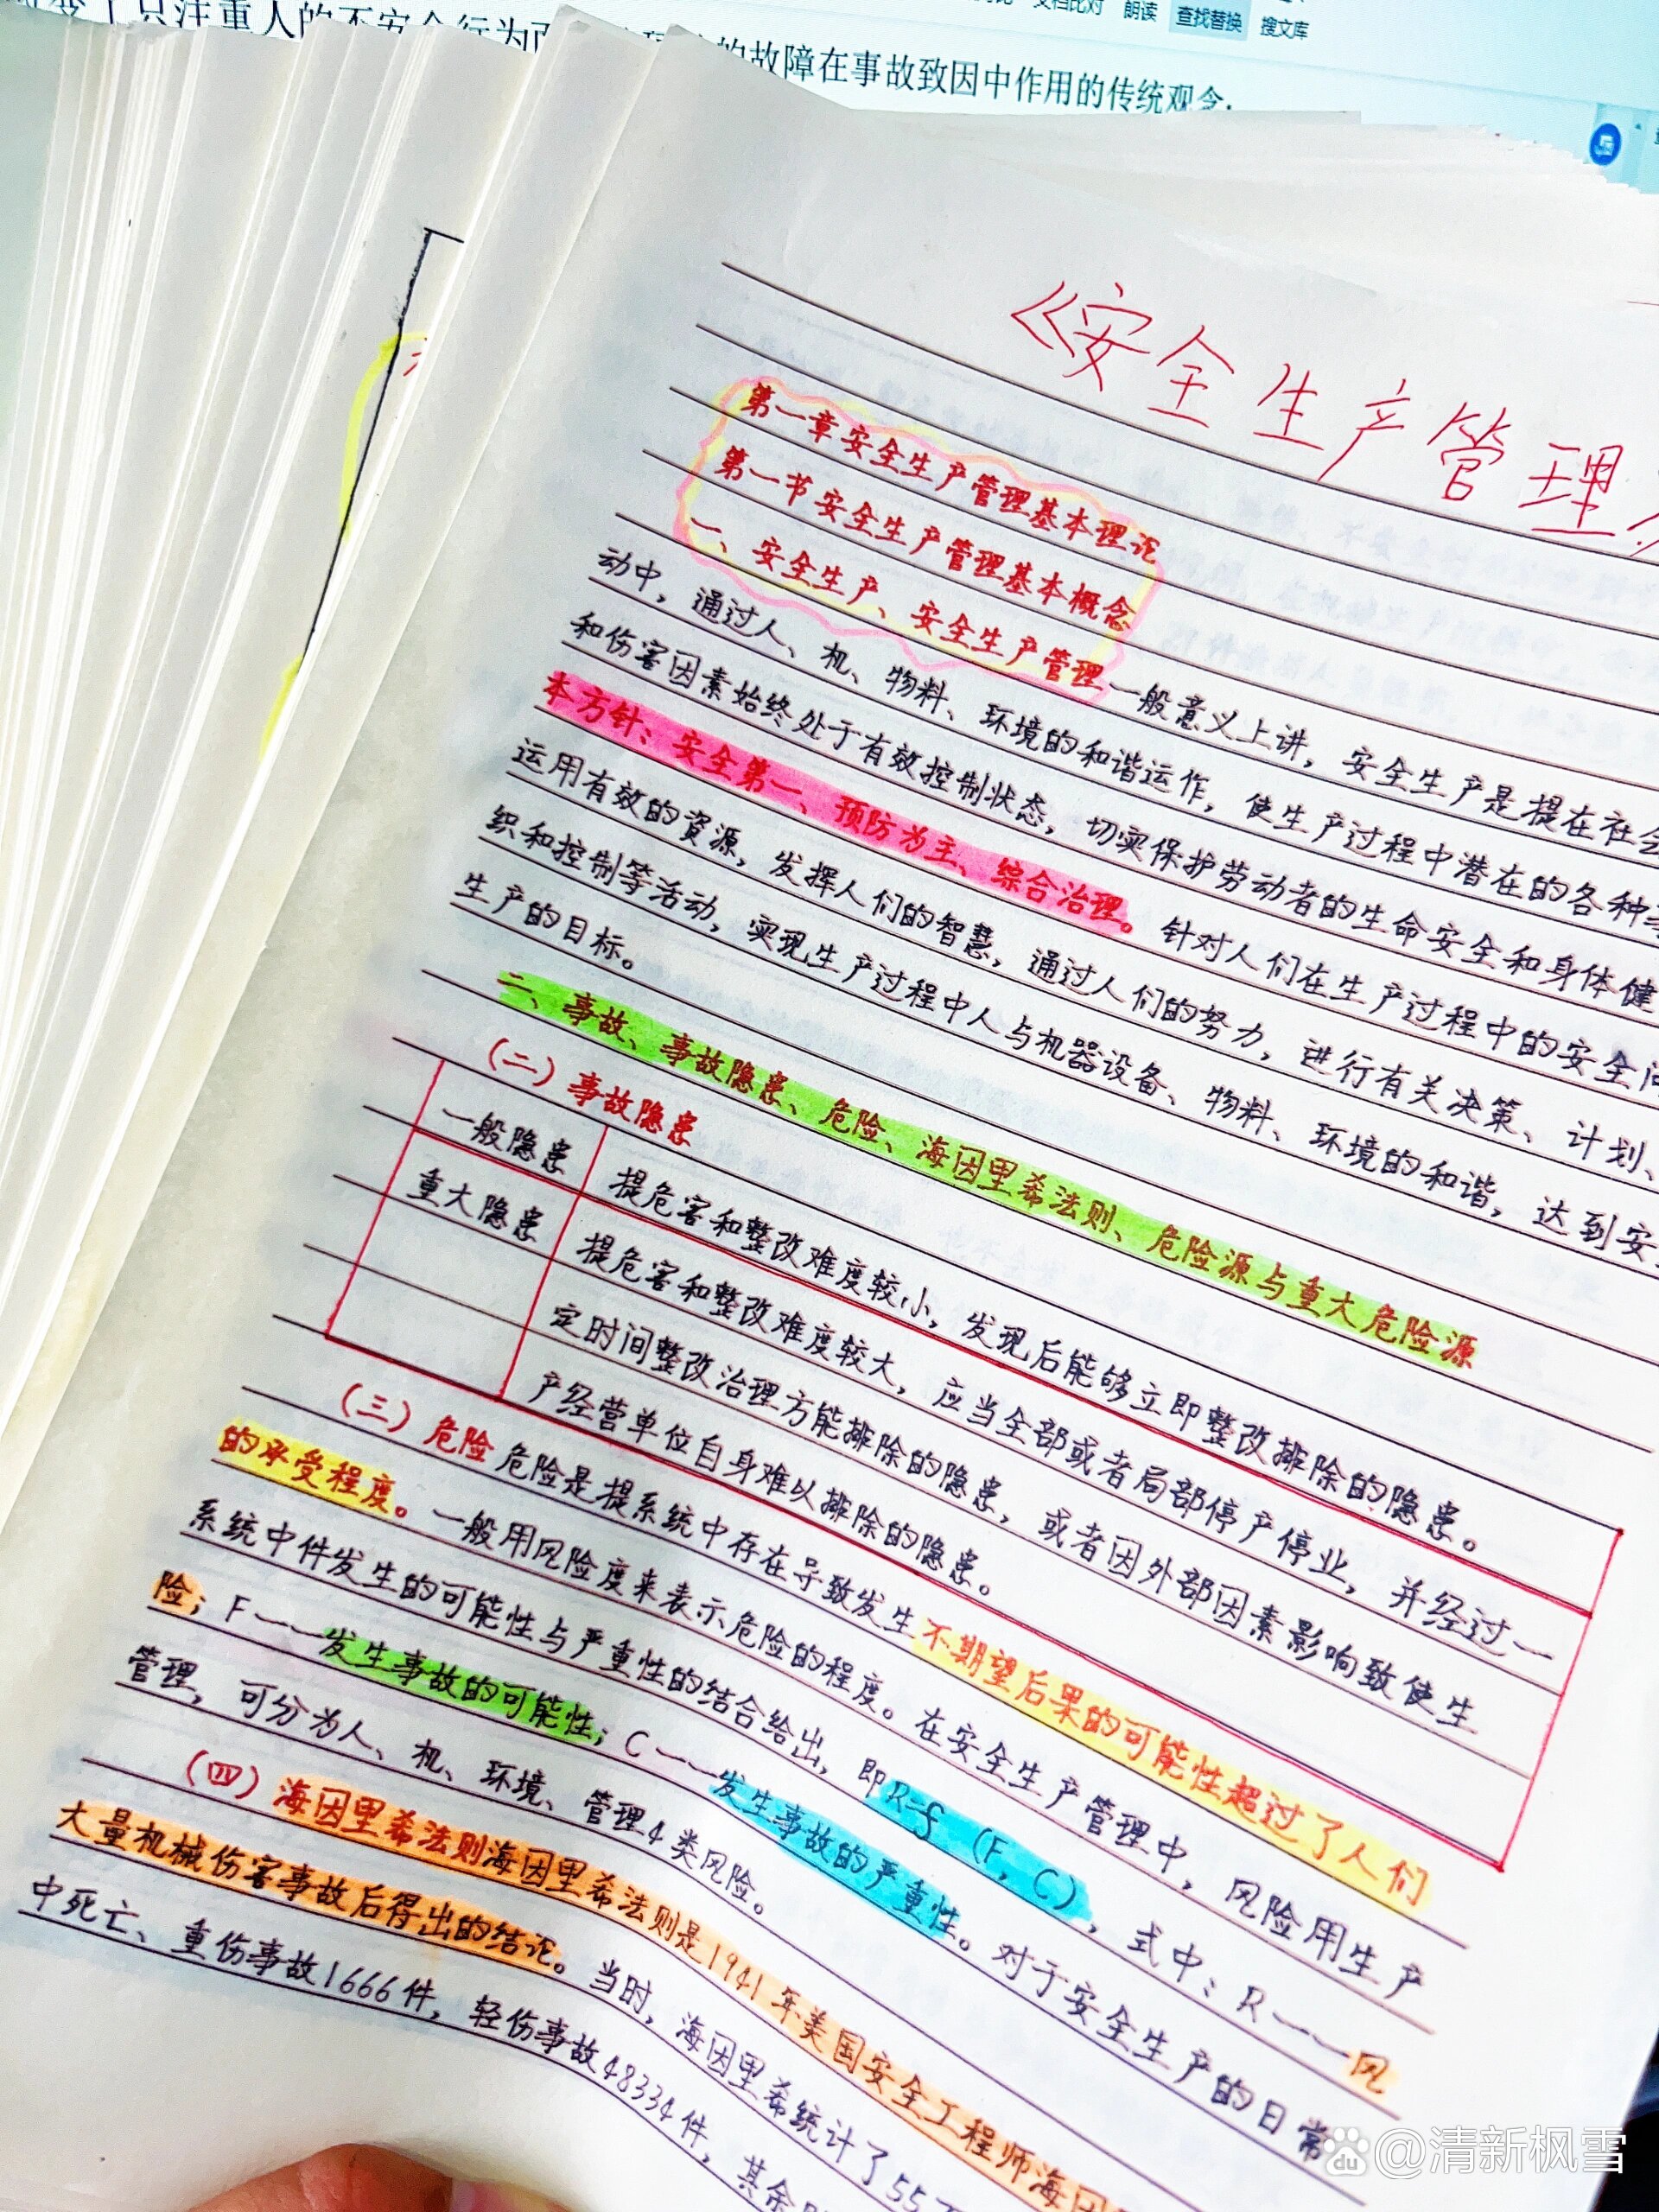 文档比对 朗读 查找替换 搜文库
变了只注重人的不安全行为而
的故障在事故致因中作用的传统观念.
《安全生产管理
第一章安全生产管理基本理论
第一节安全生产管理基本概念
一、安全生产、安全生产管理一般意义上讲，安全生产是提在社会
动中，通过人、机、物料、环境的和谐运作，使生产过程中潜在的各种
和伤害因素始终处于有效控制状态，切实保护劳动者的生命安全和身体健
本方针：安全第一、预防为主、综合治理。针对人们在生产过程中的安全问
运用有效的資源，发挥人们的智慧，通过人们的努力，进行有关决策、计划、
织和控制等活动，实现生产过程中人与机器设备、物料、环境的和谐，达到安
生产的目标。
二、事故、事故隐患、危险、海因里希法则、危险源与重大危险源
（二）事故隐患
一般隐患 提危害和整改难度较小，发现后能够立即整改排除的隐患。
重大隐患 提危害和整改难度较大，应当全部或者局部停产停业，并经过一
定时间整改治理方能排除的隐患，或者因外部因素影响致使生
产经营单位自身难以排除的隐患。
（三）危险 危险是提系统中存在导致发生不期望后果的可能性超过了人们
的承受程度。一般用风险度来表示危险的程度。在安全生产管理中，风险用生产
系统中件发生的可能性与严重性的结合给出，即R=f（F，C），式中：R——风
险；F——发生事故的可能性；C——发生事故的严重性。对于安全生产的日常
管理，可分为人、机、环境、管理4类风险。
（四）海因里希法则海因里希法则是1941年美国安全工程师海因
大量机械伤害事故后得出的结论。当时，海因里希统计了55万
中死亡、重伤事故1666件，轻伤事故48334件，其余
du @清新枫雪